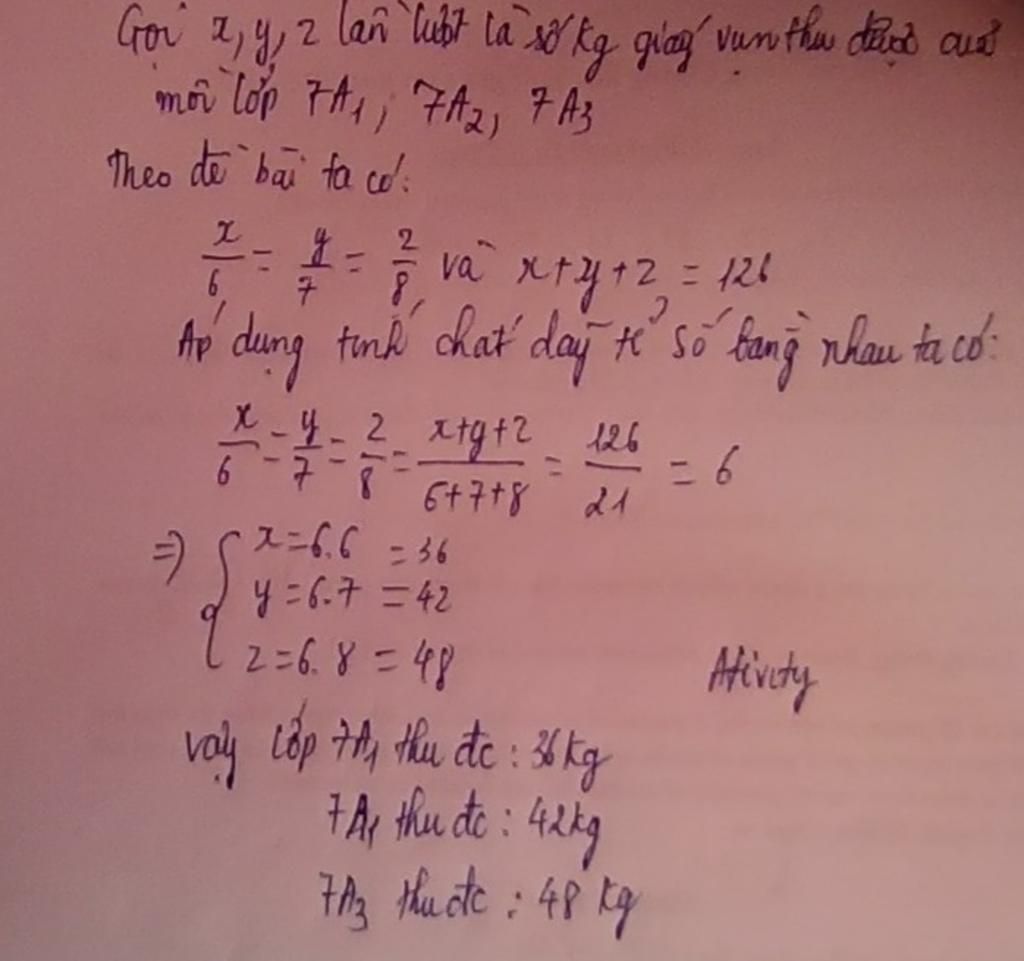 Gọi x, y, z lần lượt là số kg giấy vụn thu được của
mỗi lớp 7A1, 7A2, 7A3
Theo đề bài ta có:
x/6 = y/7 = z/8 và x+y+z = 126
Áp dụng tính chất dãy tỉ số bằng nhau ta có:
x/6 = y/7 = z/8 = x+y+z/6+7+8 = 126/21 = 6
=> { x=6.6 = 36
y = 6.7 = 42
z=6.8 = 48
Ativity
vậy lớp 7A1 thu đc : 36kg
7A1 thu đc : 42kg
7A3 thu đc : 48 kg